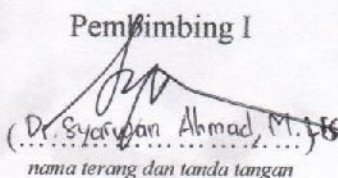 Pembimbing I
(Dr. Syarwan Ahmad, M.
nama terang dan tanda tangan